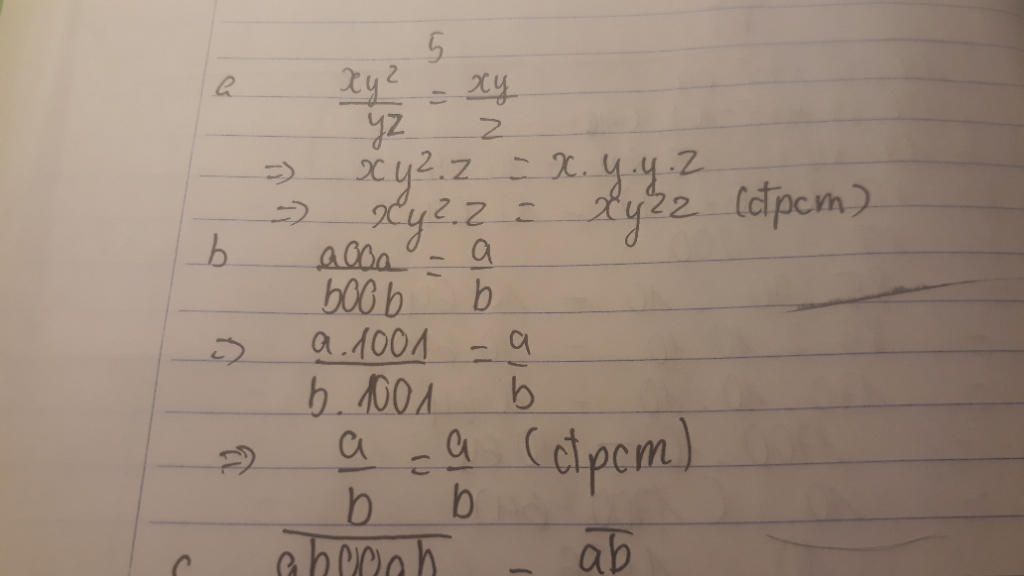 5
a xy²/yz = xy/z
=> xy².z = x.y.y.z
=> xy².z = xy²z (đpcm)
b a00a/b00b = a/b
=> a.1001/b.1001 = a/b
=> a/b = a/b (đpcm)
c ab00ab = ab